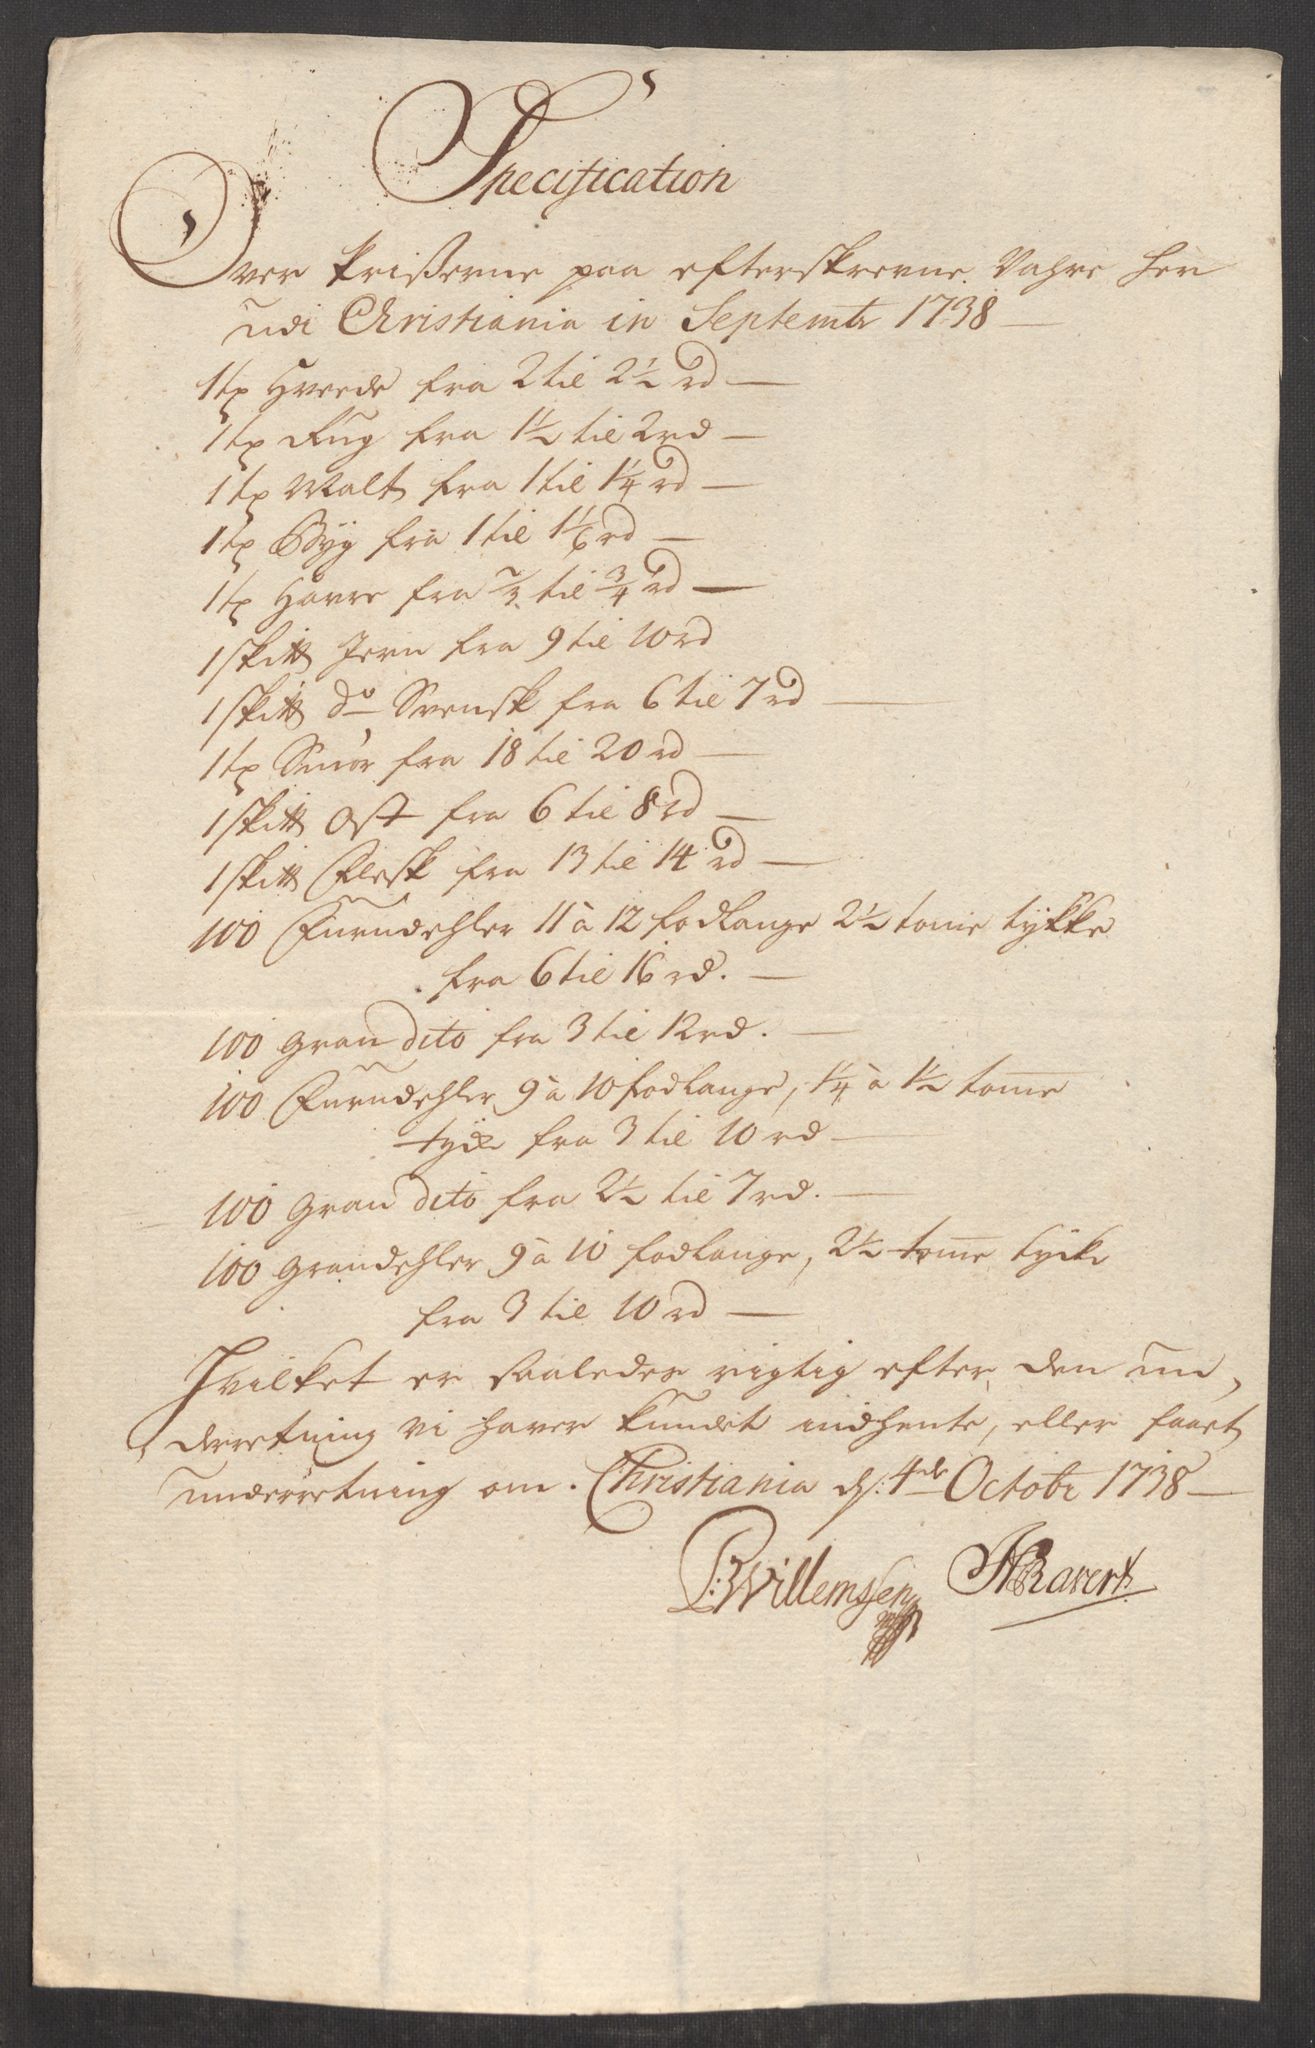 Specification
Over Prißerne paa efterskrevne Vahre her
udi Christiania in Septembr 1738 —
1 tø Hvede fra 2 til 2½ rd —
1 tø Rug fra 1½ til 2 rd —
1 tø Malt fra 1 til 1¼ rd —
1 tø Byg fra 1 til 1⅙ rd —
1 tø Havre fra ⅔ til ¾ rd —
1 skitt Jern fra 9 til 10 rd
1 skitt do Svensk fra 6 til 7 rd —
1 tø Smör fra 18 til 20 rd —
1 skitt Ost fra 6 til 8 rd —
1 skitt Flesk fra 13 til 14 rd —
100 Furudehler 11 à 12 fodlange 2½ tome tykke
fra 6 til 16 rd. —
100 Gran dito fra 3 til 12 rd. —
100 Furudehler 9 à 10 fodlange, 1¼ à 1½ tome
tyck fra 3 til 10 rd —
100 Gran dito fra 2½ til 7 rd. —
100 Grandehler 9 à 10 fodlange, 2½ tome tycke
fra 3 til 10 rd —
Hvilket er saaledes rigtig efter den un-
derretning vi haver kundet indhente, eller faaet
underretning om. Christiania d: 4de Octobr 1738 —
Willemssen Ravert